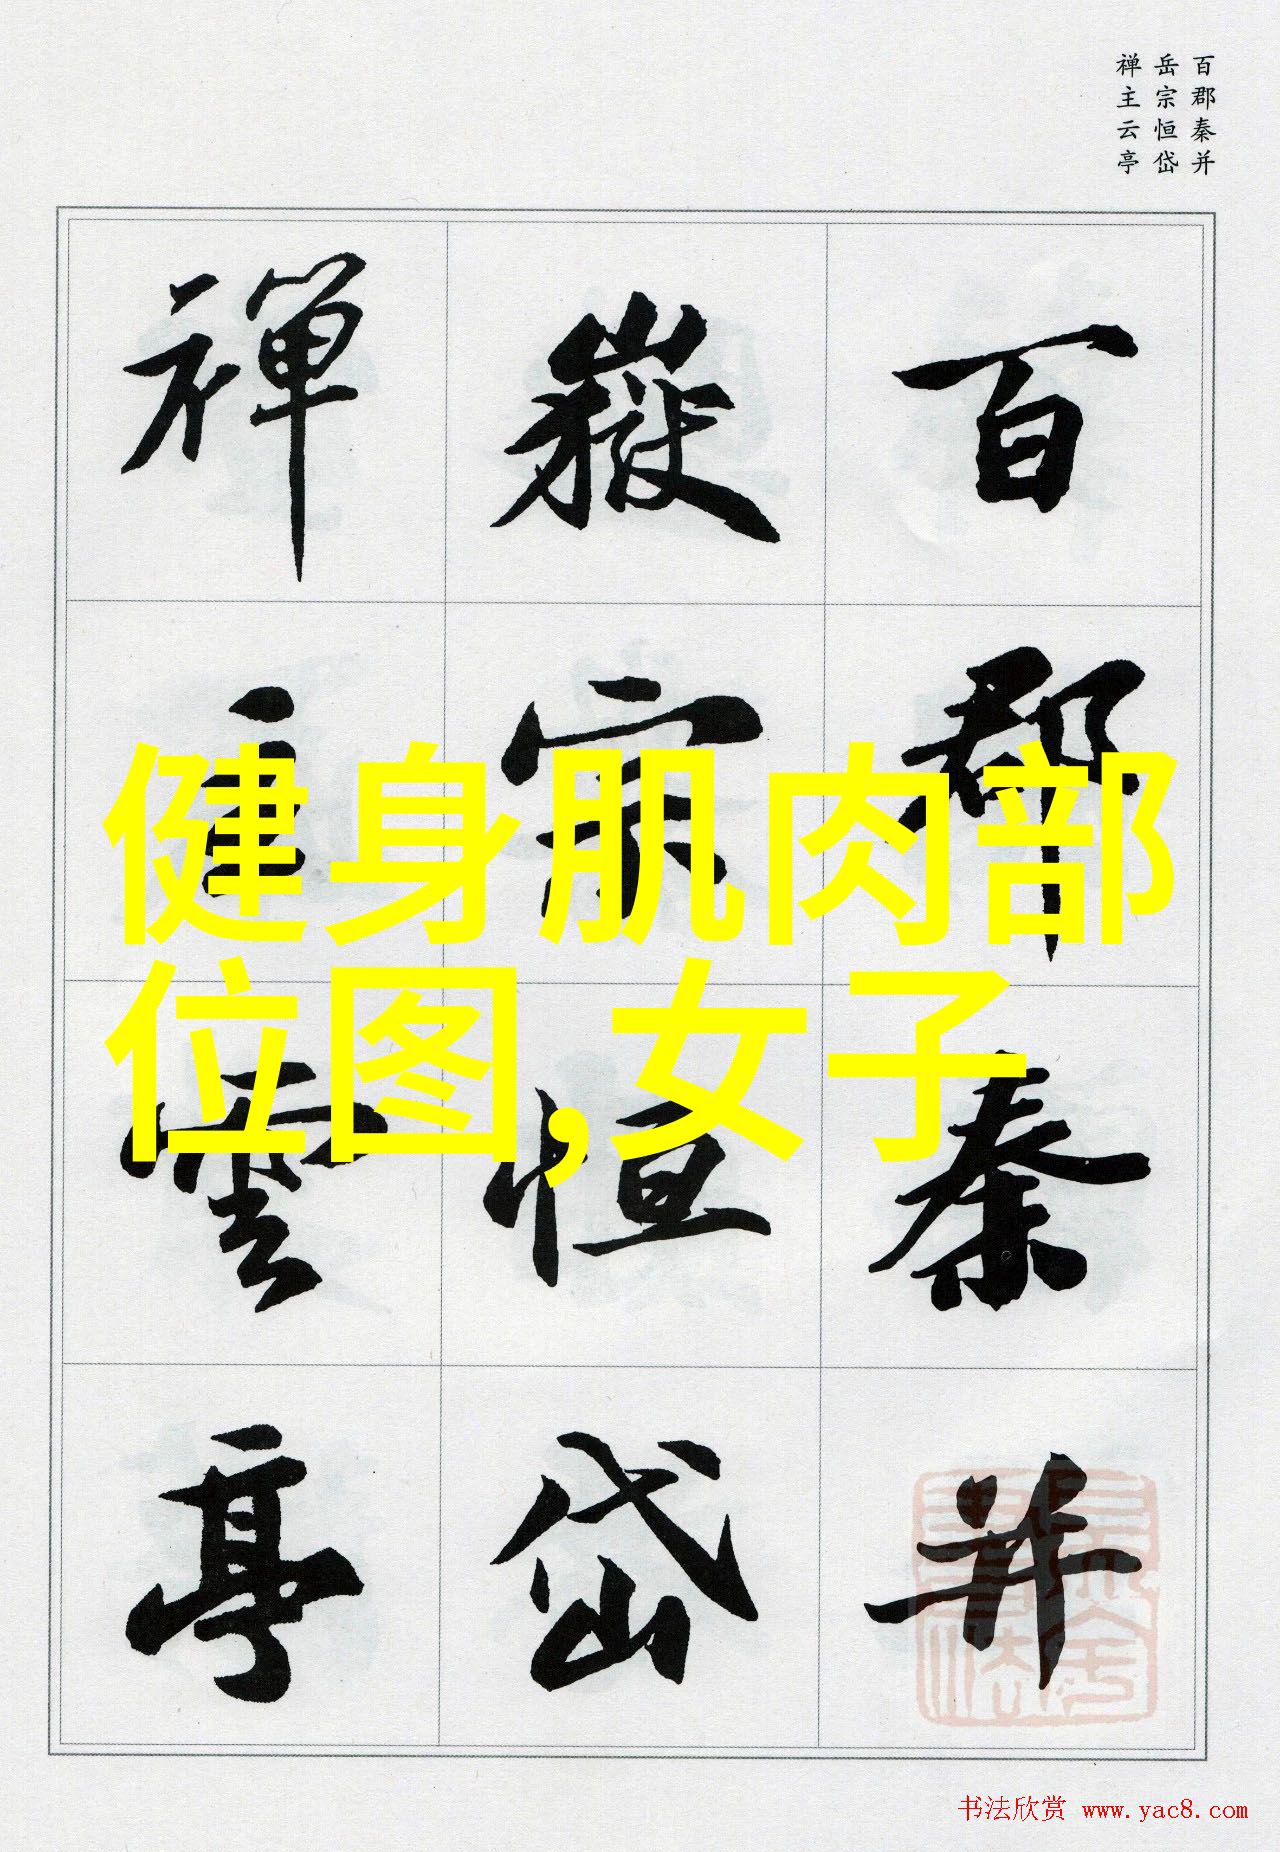 百郡秦并
岳宗恒岱
禅主云亭
百郡秦并
嶽宗恒岱
禅主雲亭
健身肌肉部
位图,女子
书法欣赏 www.yac8.com